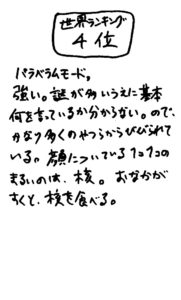 世界ランキング
4位
パラベラムモード。
強い。謎が多いうえに基本
何を言っているか分からない。ので、
かなり多くのやつらからびびられて
いる。顔についている1コ1コの
まるいのは、核。おなかが
すくと、核を食べる。